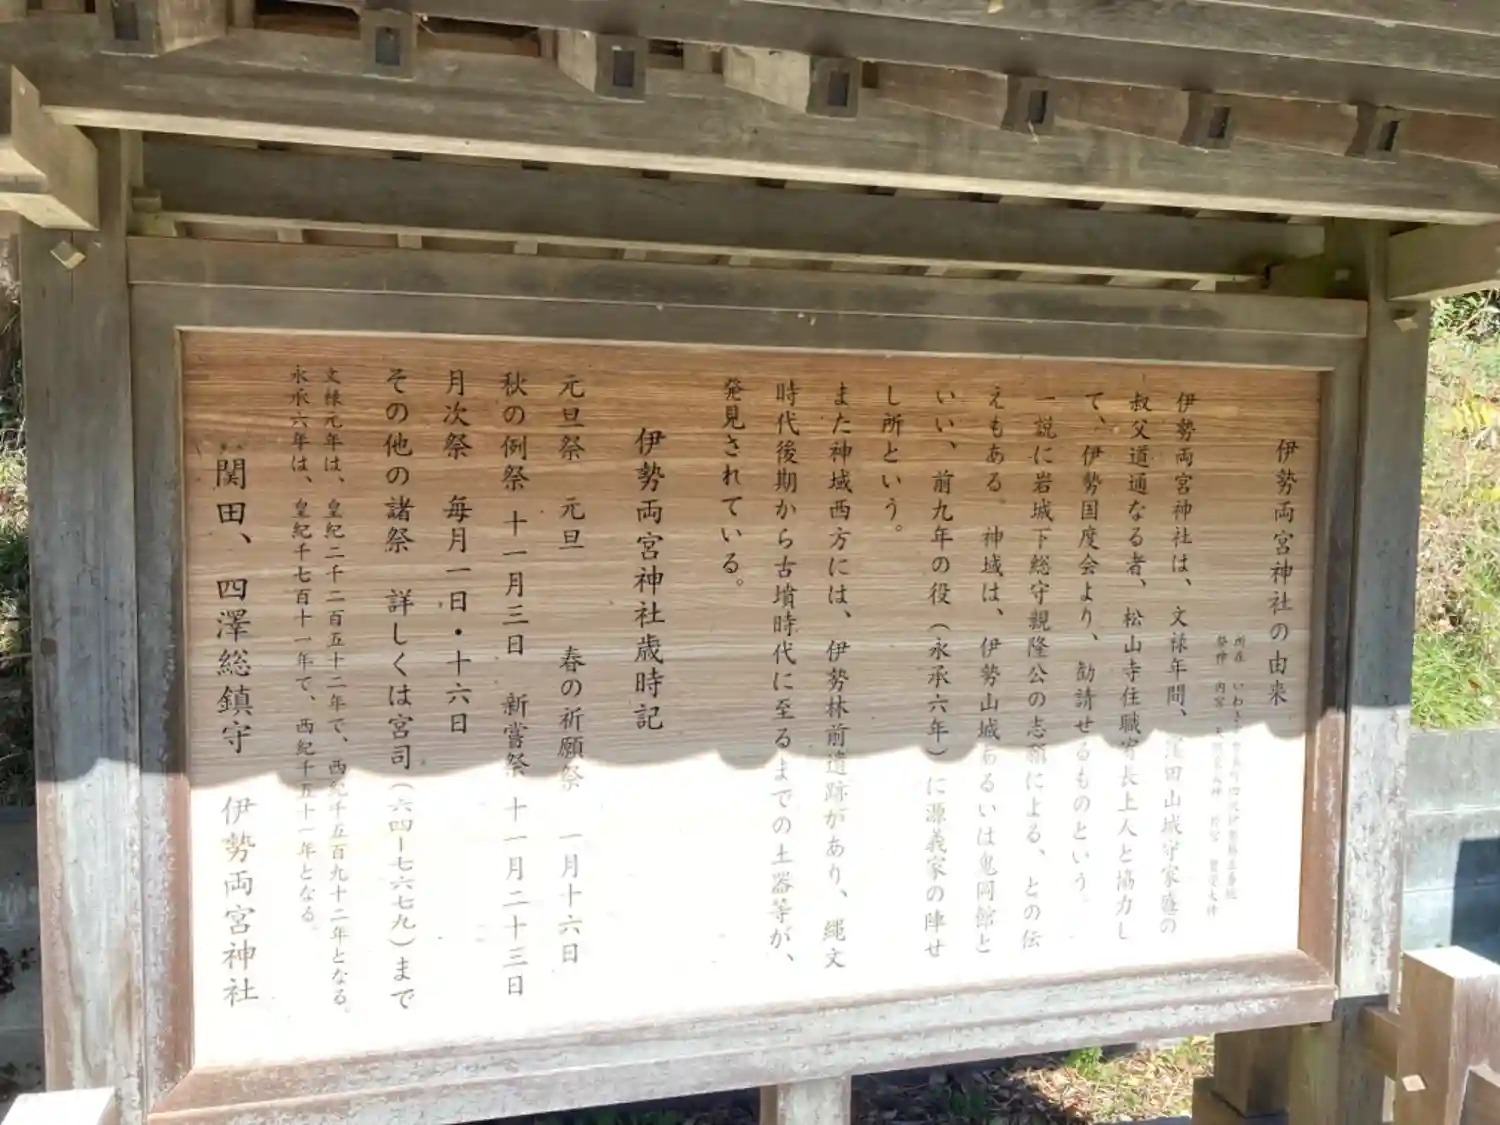 伊勢両宮神社の由来
所在 いわき
祭神 内宮
伊勢両宮神社は、文禄年間、窪田山城守家盛の
叔父道通なる者、松山寺住職宥長上人と協力し
て、伊勢国度会より、勧請せるものという。
一説に岩城下総守親隆公の志願による、との伝
えもある。神域は、伊勢山城あるいは鬼岡館と
いい、前九年の役(永承六年)に源義家の陣せ
し所という。
また神域西方には、伊勢林前遺跡があり、縄文
時代後期から古墳時代に至るまでの土器等が、
発見されている。
伊勢両宮神社歳時記
元旦祭 元旦 春の祈願祭 一月十六日
秋の例祭 十一月三日 新嘗祭 十一月二十三日
月次祭 毎月一日・十六日
その他の諸祭 詳しくは宮司(六四ー七六七九)まで
文禄元年は、皇紀二千二百五十二年で、西紀千五百九十二年となる。
永承六年は、皇紀千七百十一年で、西紀千五十一年となる。
関田、四澤総鎮守 伊勢両宮神社